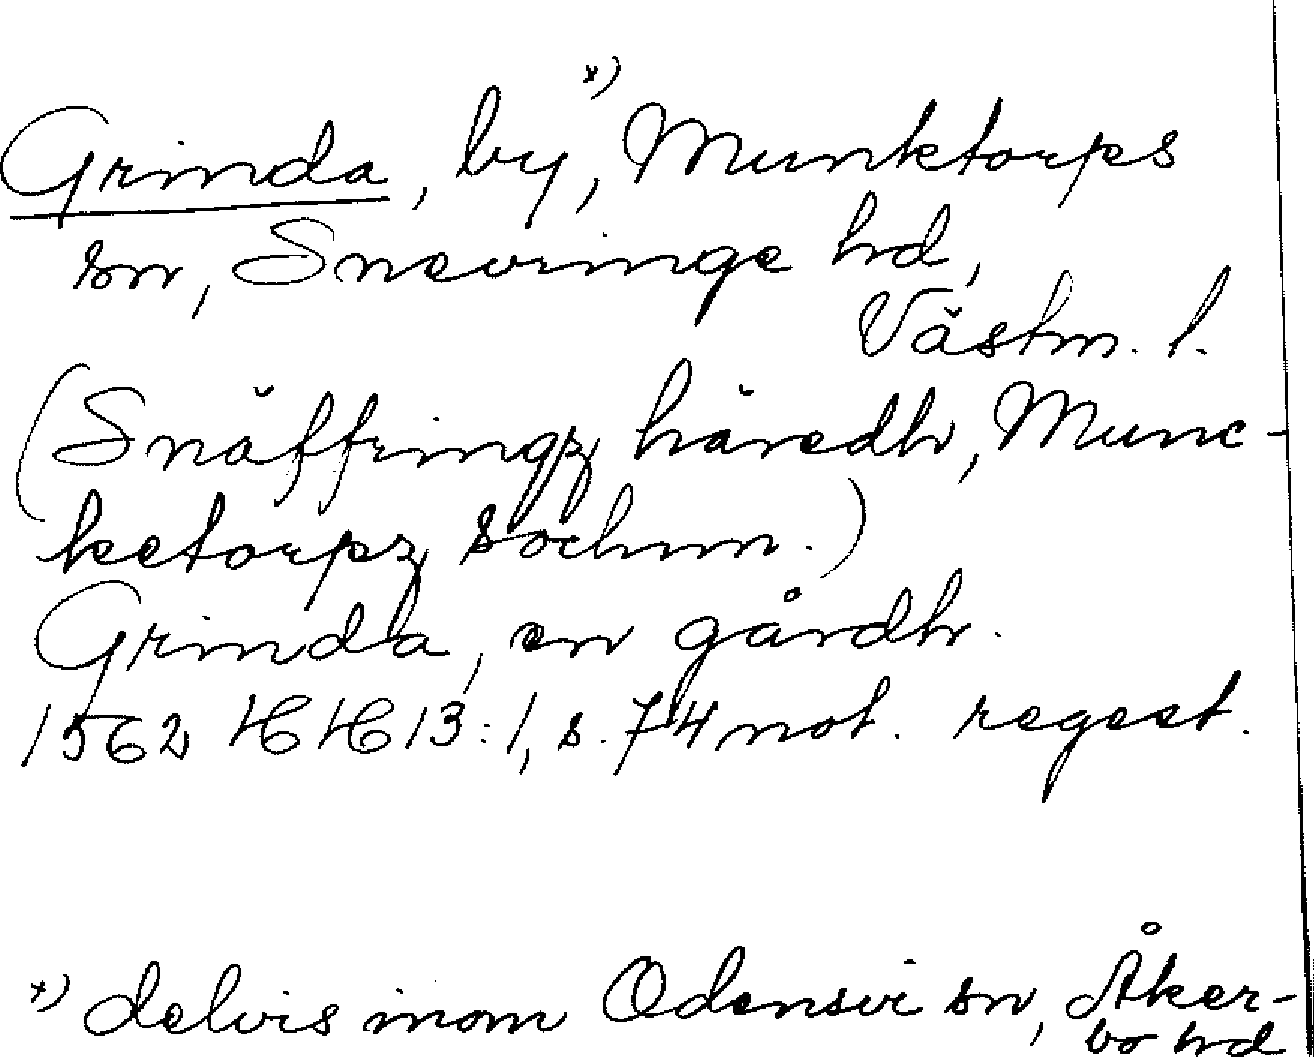 Grinda, by,*) Munktorps
sn, Snevringe hd,
Västm. l.
(Snäffringz häredh, Munc-
ketorpz sochnn.)
Grinda, en gårdh.
1562 HH 13:1, s. 74 not. regest.
*) delvis inom Odensvi sn, Åker-
bo hd